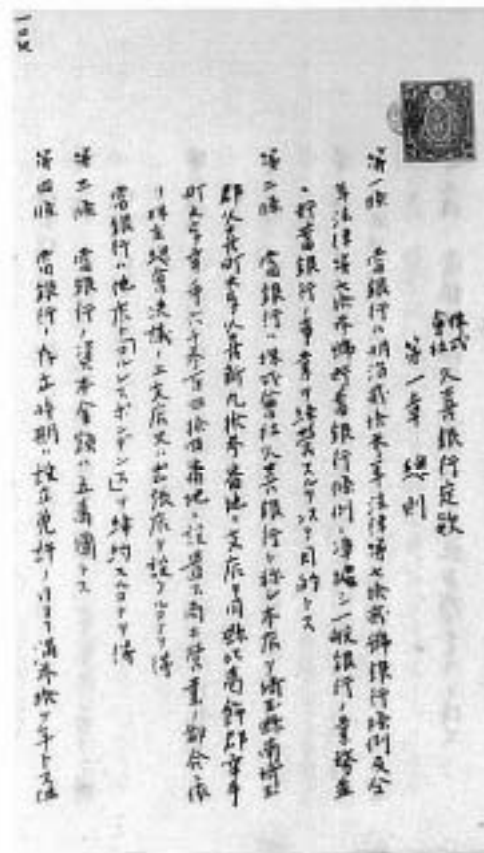 株式會社 久喜銀行定款
第一章 總則
第一條 當銀行ハ明治貳拾三年法律第七拾貳號銀行條例及仝
年法律第七拾三號貯蓄銀行條例ニ準據シ一般銀行ノ業務並
ニ貯蓄銀行ノ事業ヲ經營スルヲ以テ目的トス
第二條 當銀行ハ株式會社久喜銀行ト稱シ本店ヲ埼玉縣南埼玉
郡久喜町大字久喜新 番地ニ支店ヲ同縣北葛飾郡幸手
町大字幸手六千 番地ニ設置ス尚ホ營業ノ都合ニ依
リ株主總會決議ノ上支店又ハ出張店ヲ設クルコトヲ得
當銀行ハ他店ト「コルレスポンデンス」ヲ締約スルコトヲ得
第三條 當銀行ノ資本金額ハ五萬圓トス
第四條 當銀行ノ存立時期ハ設立免許ノ日ヨリ滿 年トス但